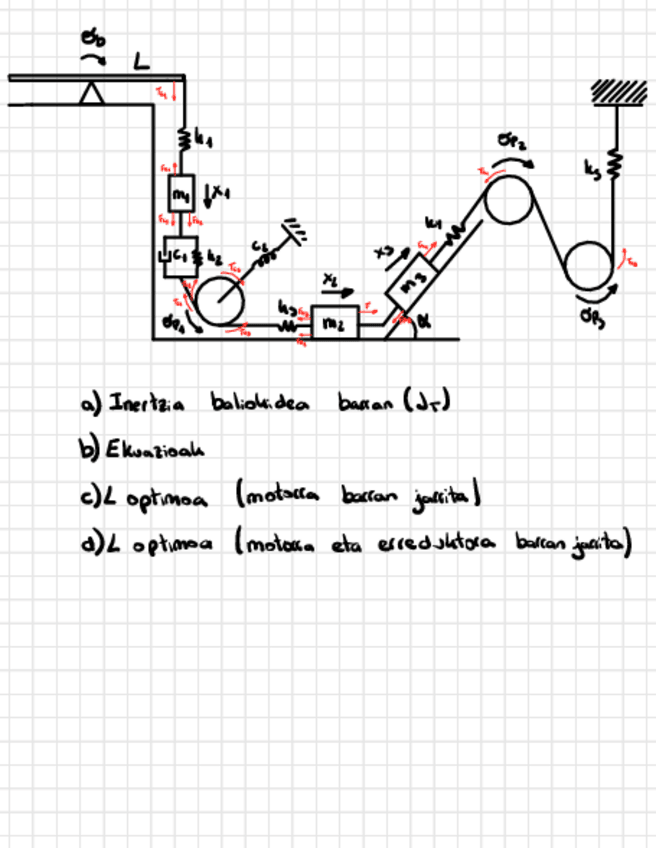 θb
L
k1
m1 x1
C1 k2
C2
θp1
k3
x2
m2
x3
m3
α
k4
θp2
k5
θp3
a) Inertzia baliokidea barran (JT)
b) Ekuazioak
c) L optimoa (motorra barran jarrita)
d) L optimoa (motorra eta erreduktora barran jarrita)